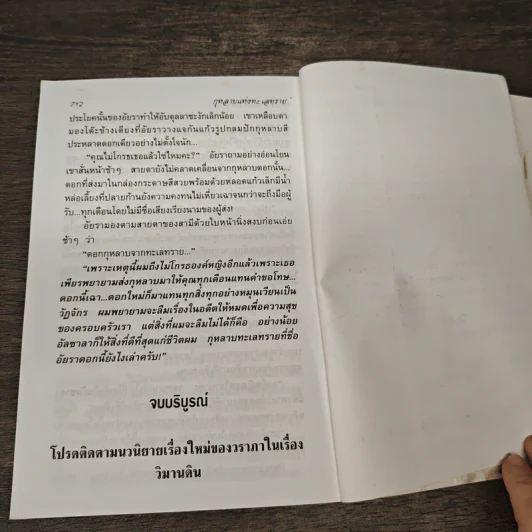 712
กุหลาบแห่งทะเลทราย
ประโยคนั้นของอัยราทำให้อับดุลลาชะงักเล็กน้อย เขาเหลือบตา
มองโต๊ะข้างเตียงที่อัยราวางแจกันแก้วรูปกลมปักกุหลาบสี
ประหลาดดอกเดียวอย่างไม่ตั้งใจนัก...
"คุณไม่โกรธเธอแล้วใช่ไหมคะ?" อัยราถามอย่างอ่อนโยน
เขาสั่นหน้าช้าๆ สายตายังไม่คลาดเคลื่อนจากกุหลาบดอกนั้น...
ดอกที่ส่งมาในกล่องกระดาษสีสวยพร้อมด้วยหลอดแก้วเล็กมีน้ำ
หล่อเลี้ยงที่ปลายก้านยังความคงทนไม่เหี่ยวเฉาจนกว่าจะถึงมือผู้
รับ...ทุกเดือนโดยไม่มีชื่อเสียงเรียงนามของผู้ส่ง!
อัยรามองตามสายตาของสามีด้วยใบหน้านิ่งสงบก่อนเอ่ย
ช้าๆ ว่า
"ดอกกุหลาบจากทะเลทราย..."
"เพราะเหตุนี้ผมถึงไม่โกรธองค์หญิงอีกแล้วเพราะเธอ
เพียรพยายามส่งกุหลาบมาให้คุณทุกเดือนแทนคำขอโทษ...
ดอกนี้เฉา...ดอกใหม่ก็มาแทนทุกสิ่งทุกอย่างหมุนเวียนเป็น
วัฏจักร ผมพยายามจะลืมเรื่องในอดีตให้หมดเพื่อความสุข
ของครอบครัวเรา แต่สิ่งที่ผมจะลืมไม่ได้ก็คือ อย่างน้อย
อัลซาลาก็ให้สิ่งที่ดีที่สุดแก่ชีวิตผม กุหลาบทะเลทรายที่ชื่อ
อัยราดอกนี้ยังไงเล่าครับ!"
จบบริบูรณ์
โปรดติดตามนวนิยายเรื่องใหม่ของวราภาในเรื่อง
วิมานดิน